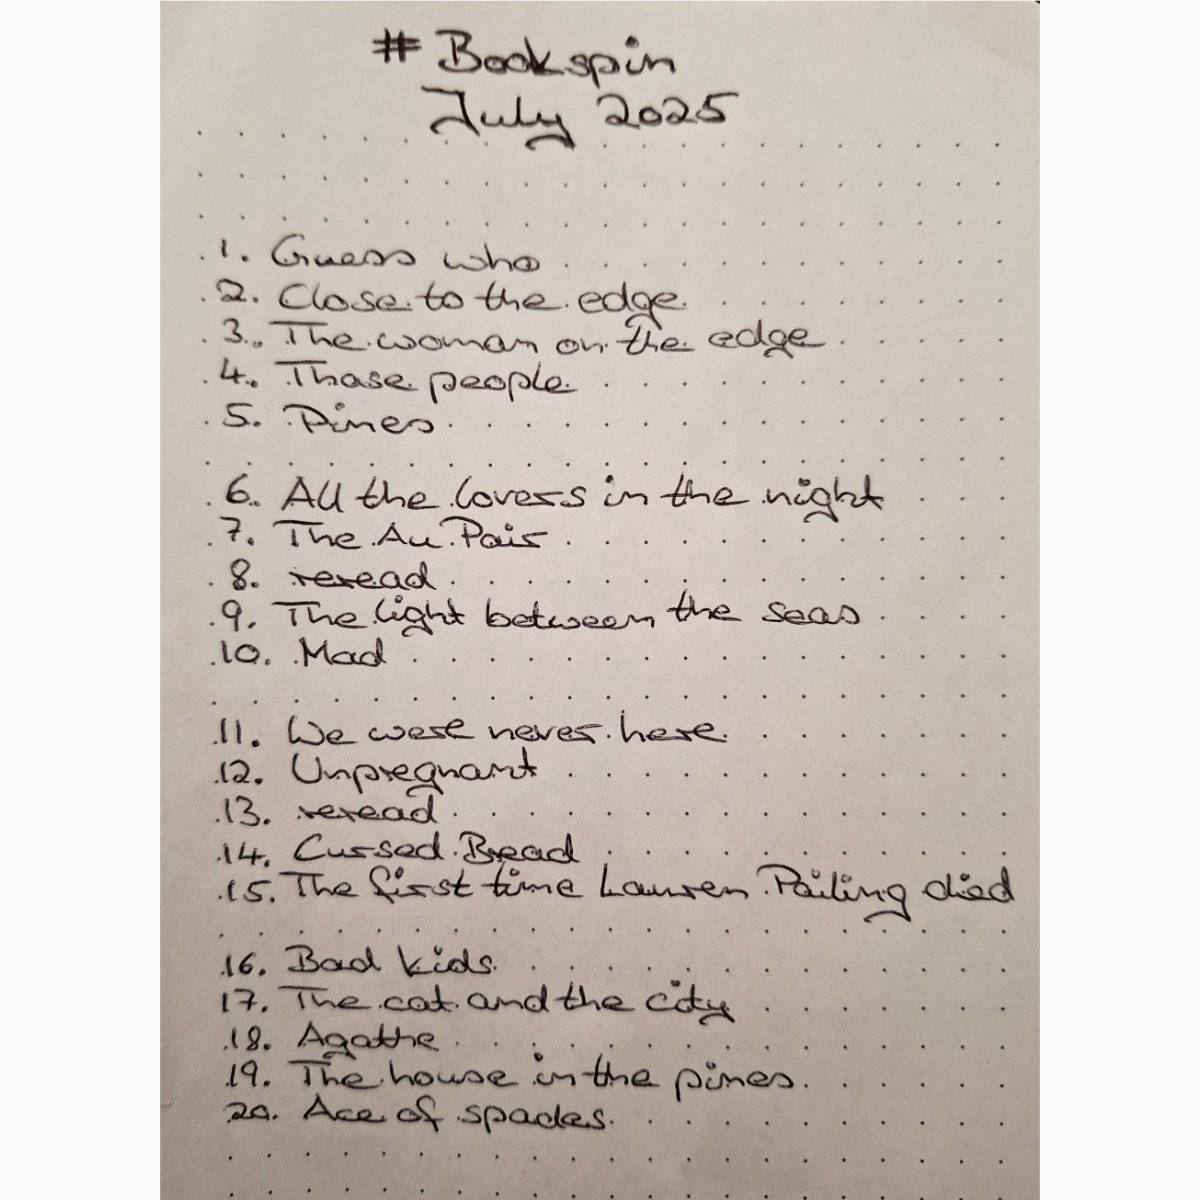 # Bookspin
July 2025
1. Guess who
2. Close to the edge
3. The woman on the edge
4. Those people
5. Pines
6. All the lovers in the night
7. The Au Pair
8. reread
9. The light between the seas
10. Mad
11. We were never here
12. Unpregnant
13. reread
14. Cursed Bread
15. The first time Lauren Pailing died
16. Bad kids
17. The cat and the city
18. Agathe
19. The house in the pines
20. Ace of spades